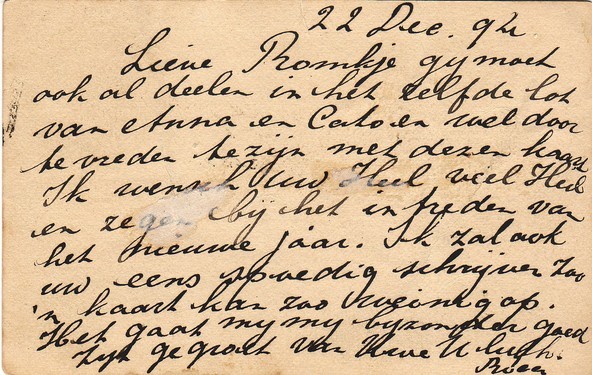 22 Dec. 94
Lieve Romkje gij moet
ook al deelen in het zelfde lot
van Anna en Cato en wel door
te vreden te zijn met dezen kaart
Ik wensch uw Heil viel Heil
en zegen bij het in treden van
het nieuwe jaar. Ik zal ook
uw eens spoedig schrijven zoo
'n kaart kan zoo weinig op.
Het gaat my my byzonder goed
Zyt gegroet van Uwe